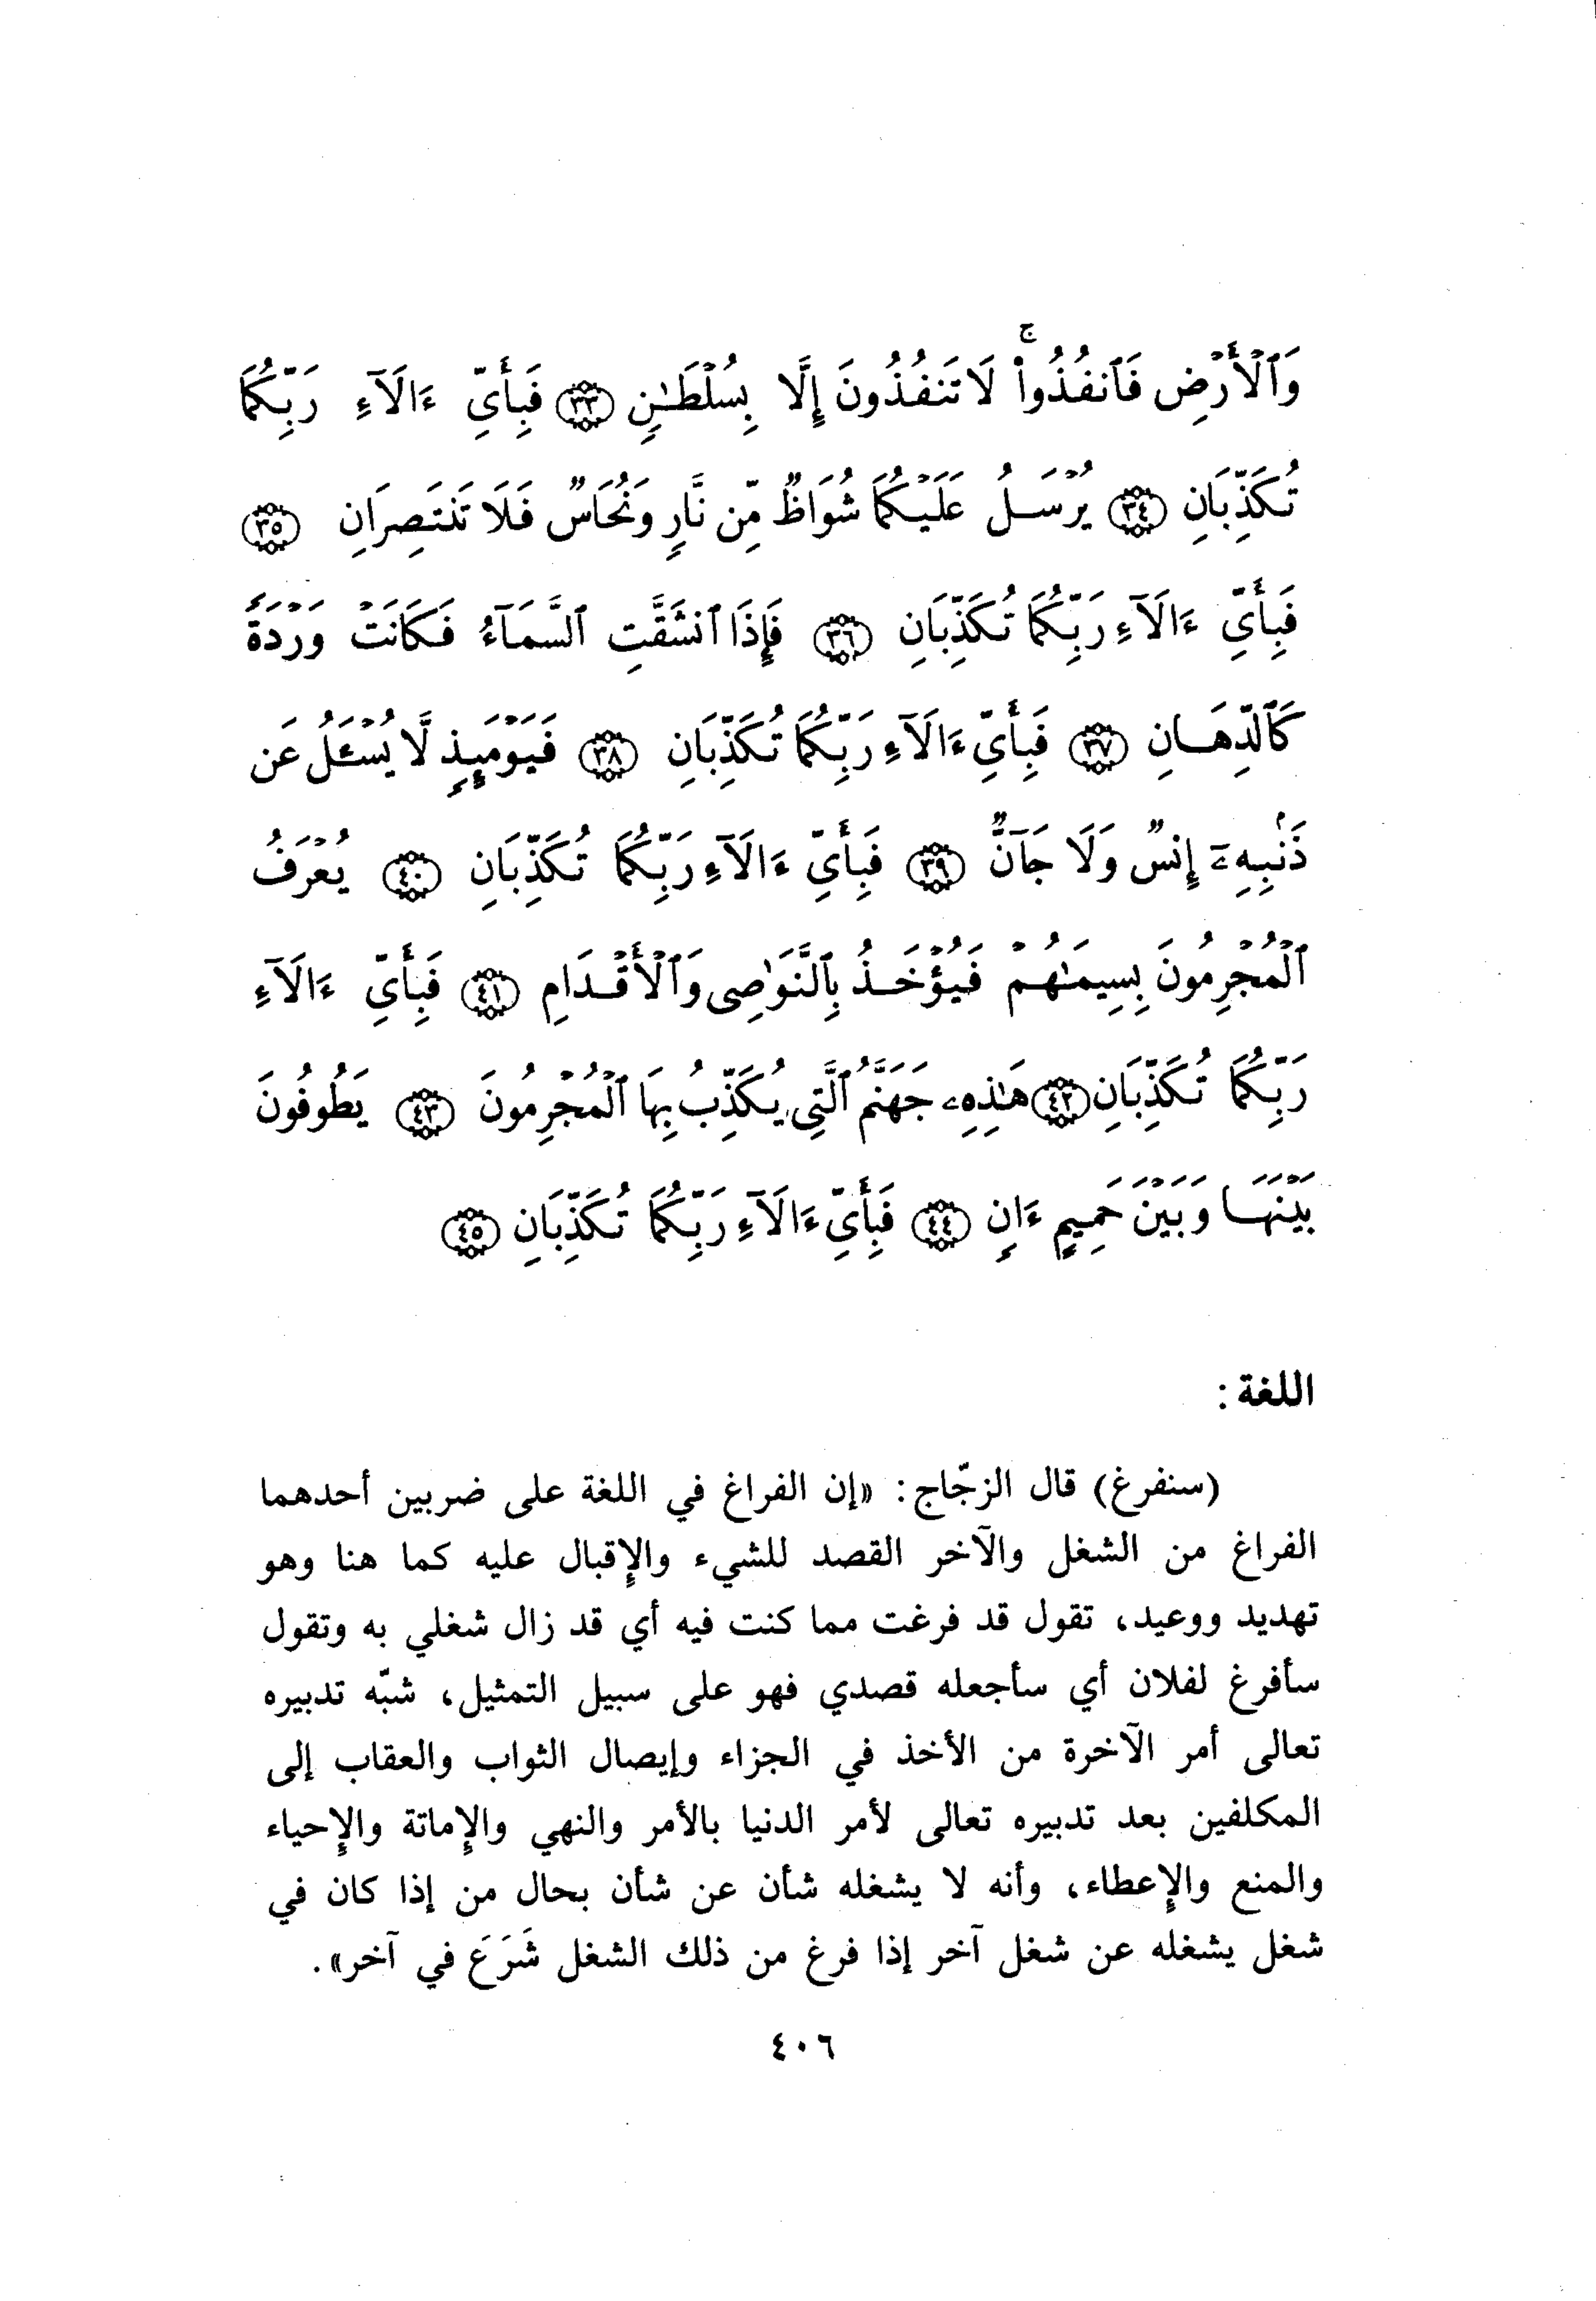 وَٱلْأَرْضِ فَٱنفُذُوا۟ ۚ لَا تَنفُذُونَ إِلَّا بِسُلْطَـٰنٍ ﴿٣٣﴾ فَبِأَىِّ ءَالَآءِ رَبِّكُمَا
تُكَذِّبَانِ ﴿٣٤﴾ يُرْسَلُ عَلَيْكُمَا شُوَاظٌ مِّن نَّارٍ وَنُحَاسٌ فَلَا تَنتَصِرَانِ ﴿٣٥﴾
فَبِأَىِّ ءَالَآءِ رَبِّكُمَا تُكَذِّبَانِ ﴿٣٦﴾ فَإِذَا ٱنشَقَّتِ ٱلسَّمَآءُ فَكَانَتْ وَرْدَةً
كَٱلدِّهَانِ ﴿٣٧﴾ فَبِأَىِّ ءَالَآءِ رَبِّكُمَا تُكَذِّبَانِ ﴿٣٨﴾ فَيَوْمَئِذٍ لَّا يُسْـَٔلُ عَن
ذَنۢبِهِۦٓ إِنسٌ وَلَا جَآنٌّ ﴿٣٩﴾ فَبِأَىِّ ءَالَآءِ رَبِّكُمَا تُكَذِّبَانِ ﴿٤٠﴾ يُعْرَفُ
ٱلْمُجْرِمُونَ بِسِيمَـٰهُمْ فَيُؤْخَذُ بِٱلنَّوَٰصِى وَٱلْأَقْدَامِ ﴿٤١﴾ فَبِأَىِّ ءَالَآءِ
رَبِّكُمَا تُكَذِّبَانِ ﴿٤٢﴾ هَـٰذِهِۦ جَهَنَّمُ ٱلَّتِى يُكَذِّبُ بِهَا ٱلْمُجْرِمُونَ ﴿٤٣﴾ يَطُوفُونَ
بَيْنَهَا وَبَيْنَ حَمِيمٍ ءَانٍ ﴿٤٤﴾ فَبِأَىِّ ءَالَآءِ رَبِّكُمَا تُكَذِّبَانِ ﴿٤٥﴾
اللغة :
(سنفرغ) قال الزجّاج : «إن الفراغ في اللغة على ضربين أحدهما
الفراغ من الشغل والآخر القصد للشيء والإقبال عليه كما هنا وهو
تهديد ووعيد، تقول قد فرغت مما كنت فيه أي قد زال شغلي به وتقول
سأفرغ لفلان أي سأجعله قصدي فهو على سبيل التمثيل، شبّه تدبيره
تعالى أمر الآخرة من الأخذ في الجزاء وإيصال الثواب والعقاب إلى
المكلفين بعد تدبيره تعالى لأمر الدنيا بالأمر والنهي والإماتة والإحياء
والمنع والإعطاء، وأنه لا يشغله شأن عن شأن بحال من إذا كان في
شغل يشغله عن شغل آخر إذا فرغ من ذلك الشغل شَرَعَ في آخر» .
٤٠٦